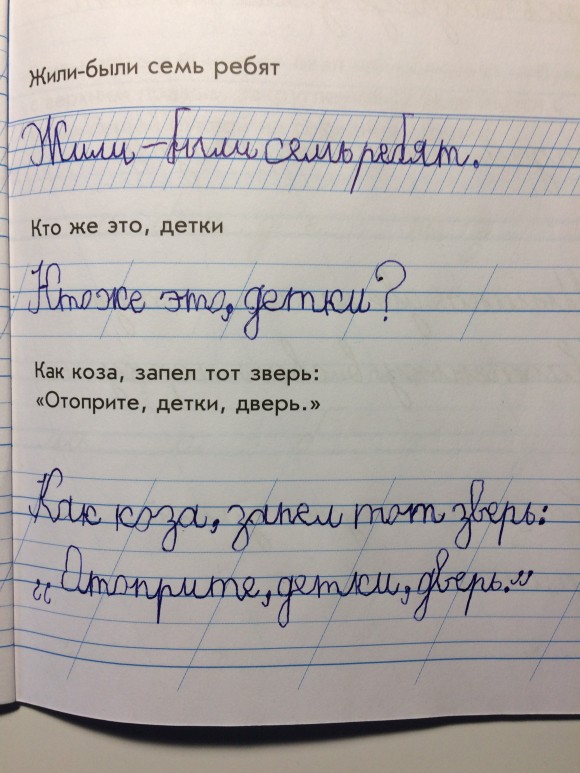 Жили-были семь ребят
Жили-были семь ребят.
Кто же это, детки
Кто же это, детки?
Как коза, запел тот зверь:
«Отоприте, детки, дверь.»
Как коза, запел тот зверь:
„Отоприте, детки, дверь.”